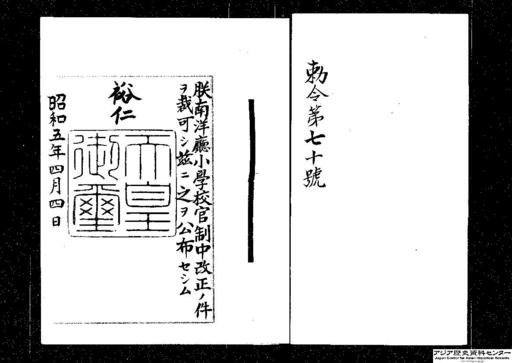 勅令第七十號
朕南洋廳小學校官制中改正ノ件
ヲ裁可シ茲ニ之ヲ公布セシム
裕仁
天皇
御璽
昭和五年四月四日
アジア歴史資料センター
Japan Center for Asian Historical Records